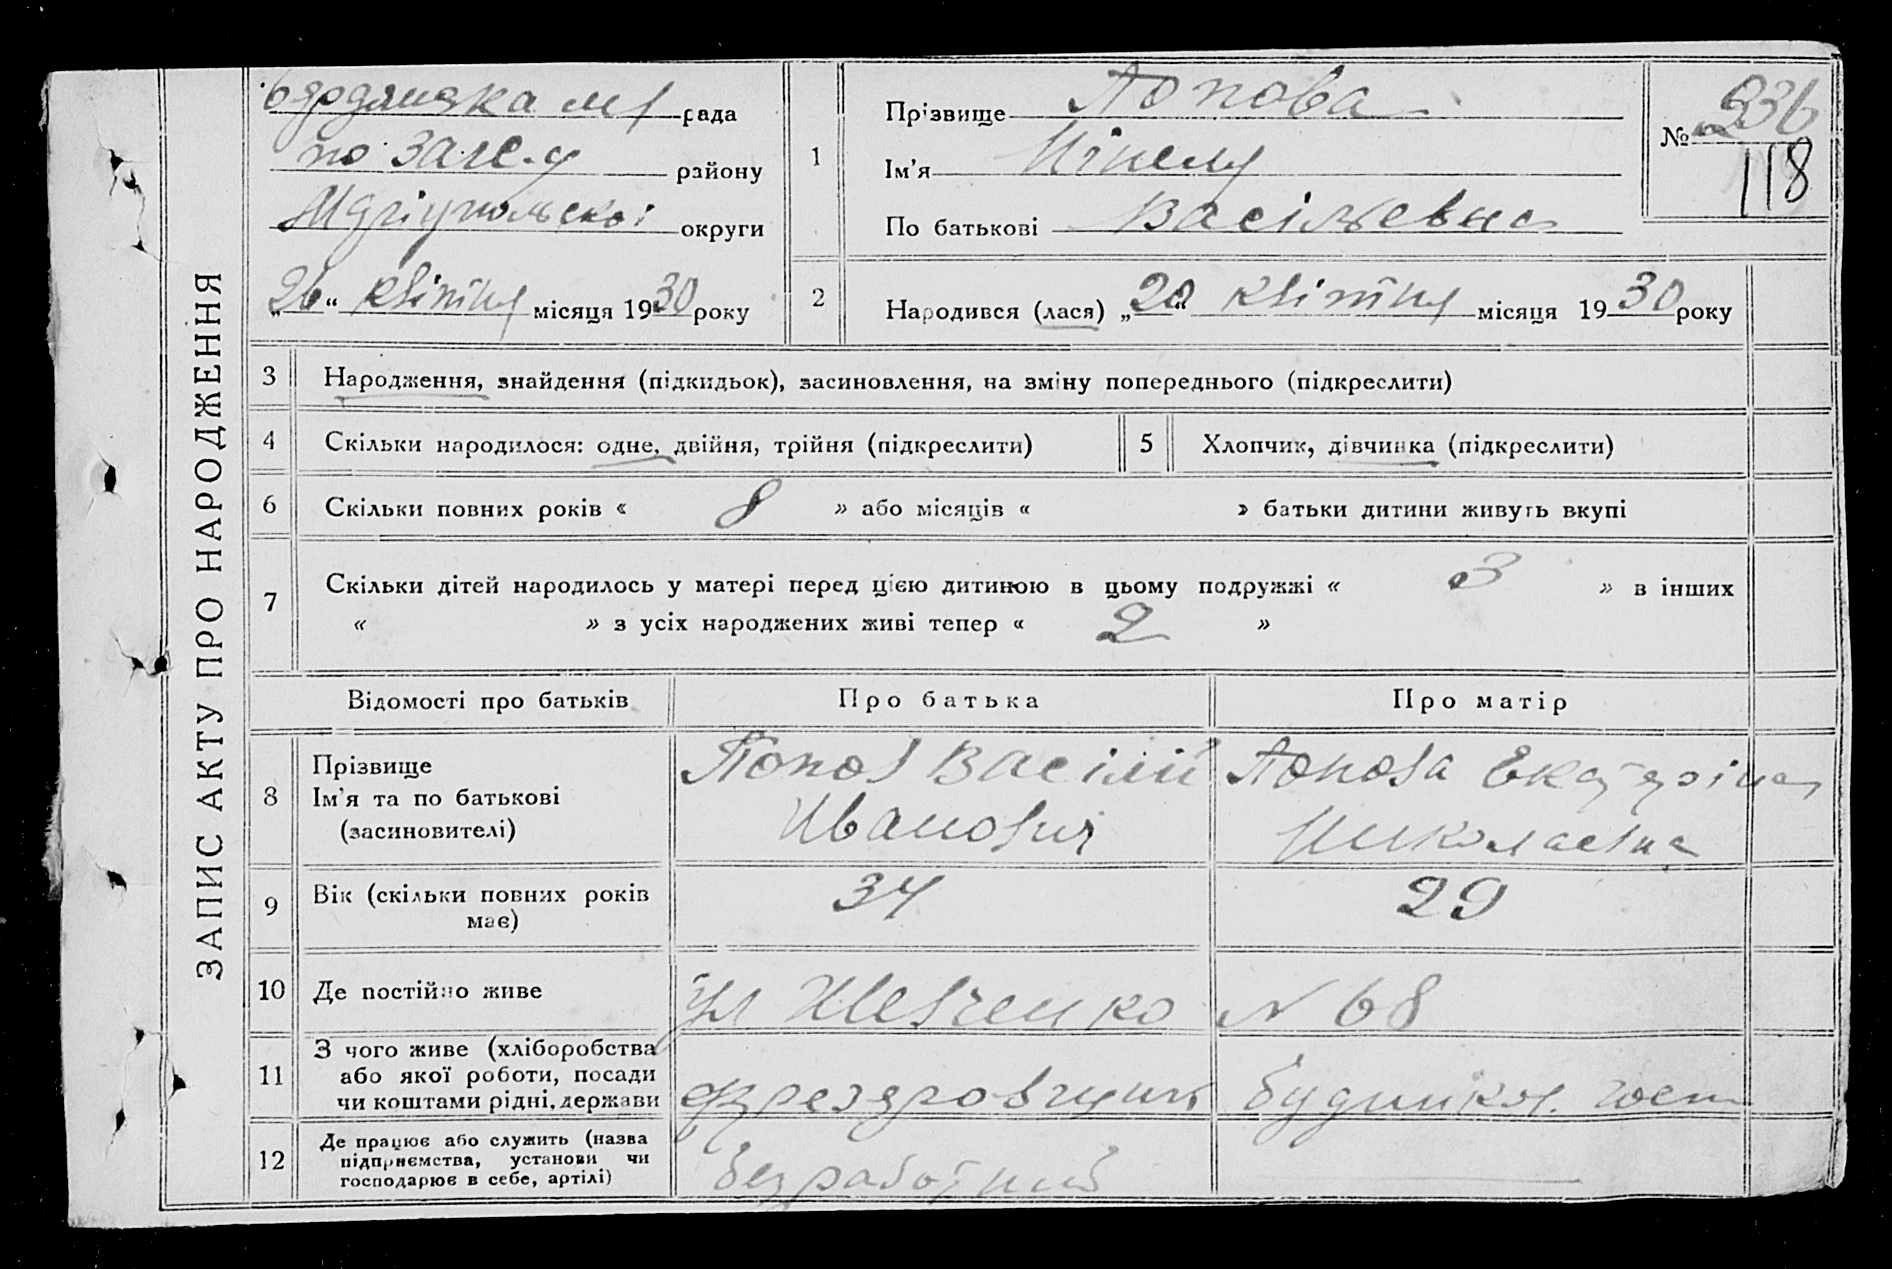 ЗАПИС АКТУ ПРО НАРОДЖЕННЯ
м/рада
району
Маріупольскоі округи
„26“ квітня місяця 1930 року
1
Прізвище Попова
Ім’я
По батькові Васільевна
№ 336
118
2
Народився (лася) „20“ квітня місяця 1930 року
3 Народження, знайдення (підкидьок), засиновлення, на зміну попереднього (підкреслити)
4 Скільки народилося: одне, двійня, трійня (підкреслити)
5 Хлопчик, дівчинка (підкреслити)
6 Скільки повних років « 8 » або місяців « » батьки дитини живуть вкупі
7 Скільки дітей народилось у матері перед цією дитиною в цьому подружжі « 3 » в інших
« » з усіх народжених живі тепер « 2 »
Відомості про батьків
Про батька
Про матір
8
Прізвище
Ім’я та по батькові
(засиновителі)
Попов Васілій
Иванович
Попова Екатеріна
Николаевна
9
Вік (скільки повних років
має)
34
29
10 Де постійно живе
ул Шевченко N 68
11
З чого живе (хліборобства
або якої роботи, посади
чи коштами рідні, держави
12
Де працює або служить (назва
підприємства, установи чи
господарює в себе, артілі)
безработний